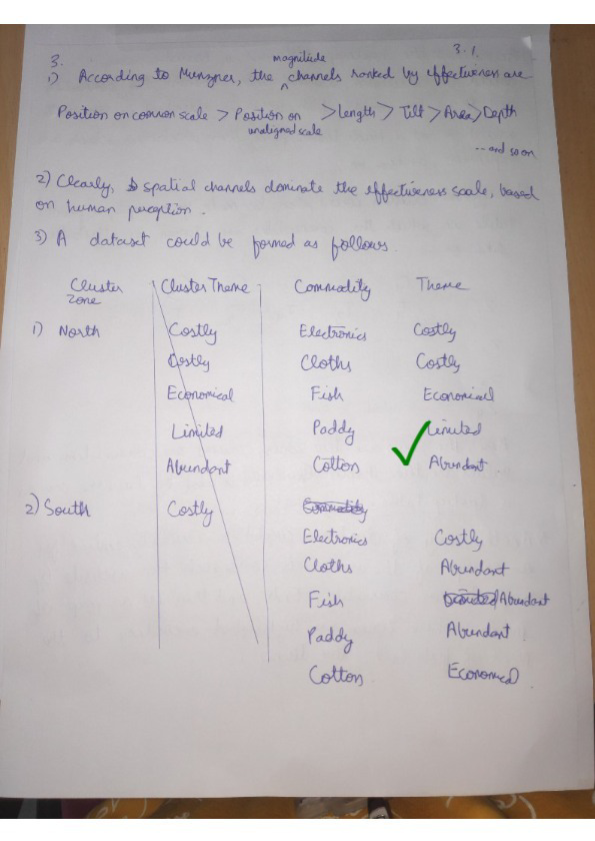 3. 3.1.
magnitude
1) According to Munzner, the ^ channels ranked by effectiveness are
Position on common scale > Position on unaligned scale > Length > Tilt > Area > Depth
-- and so on
2) Clearly, spatial channels dominate the effectiveness scale, based
on human perception.
3) A dataset could be formed as follows.
Cluster Zone Cluster Theme Commodity Theme
1) North Costly Electronics Costly
Costly Cloths Costly
Economical Fish Economical
Limited Paddy Limited
Abundant Cotton Abundant
2) South Costly Commodity
Electronics Costly
Cloths Abundant
Fish Limited Abundant
Paddy Abundant
Cotton Economical